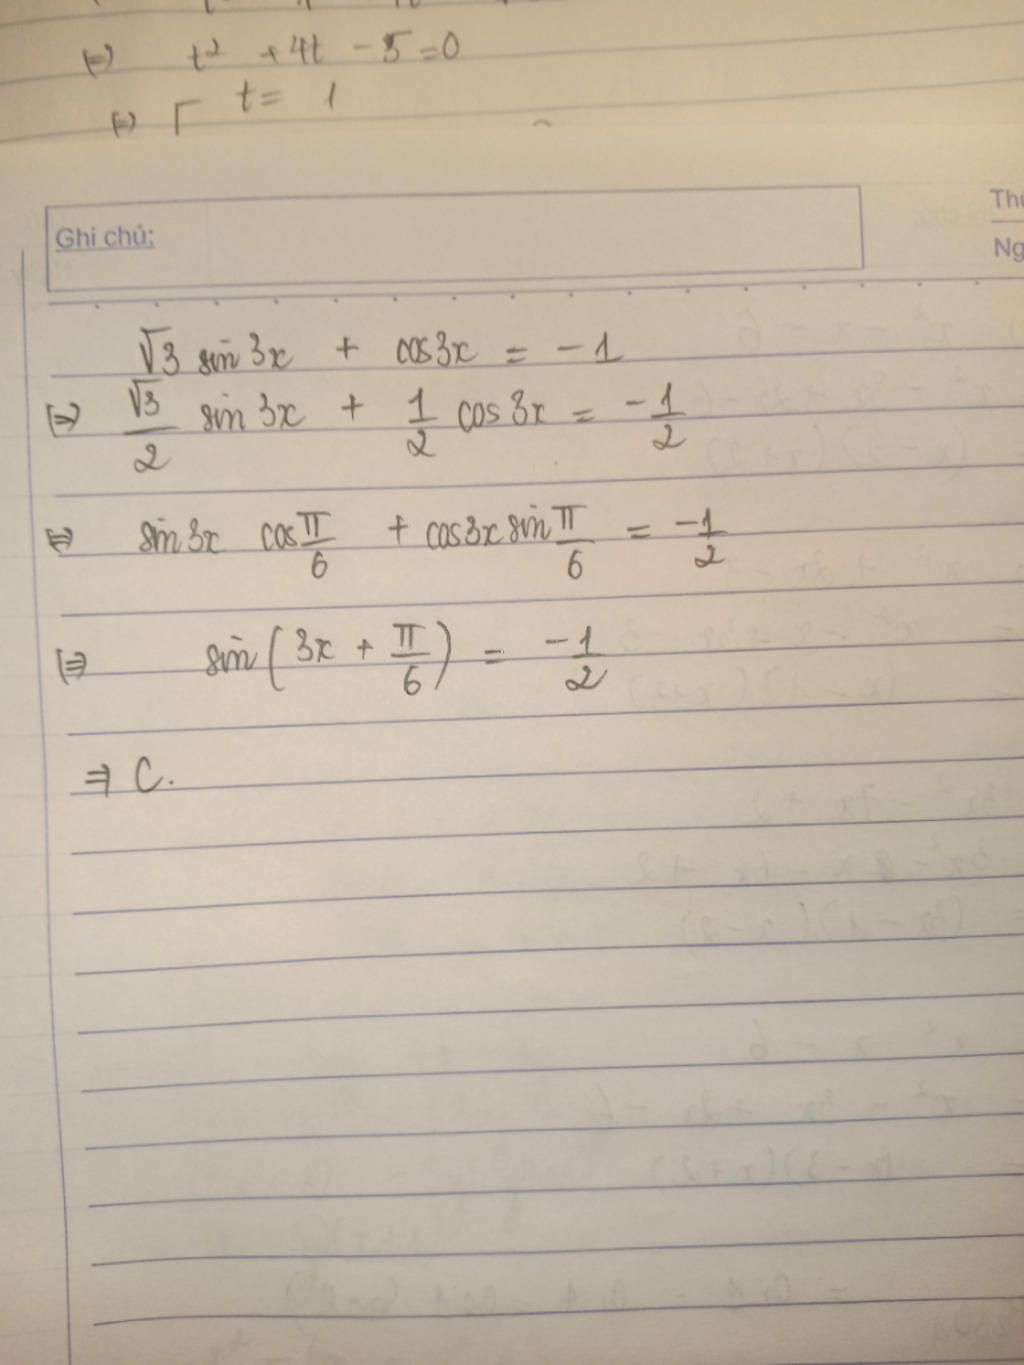 (=) t² + 4t - 5 = 0
(=) [ t = 1
Thứ
Ghi chú:
Ng
√3 sin 3x + cos3x = -1
(=) √3/2 sin 3x + 1/2 cos 3x = -1/2
(=) sin 3x cos π/6 + cos3x sin π/6 = -1/2
(=) sin(3x + π/6) = -1/2
⇒ C.